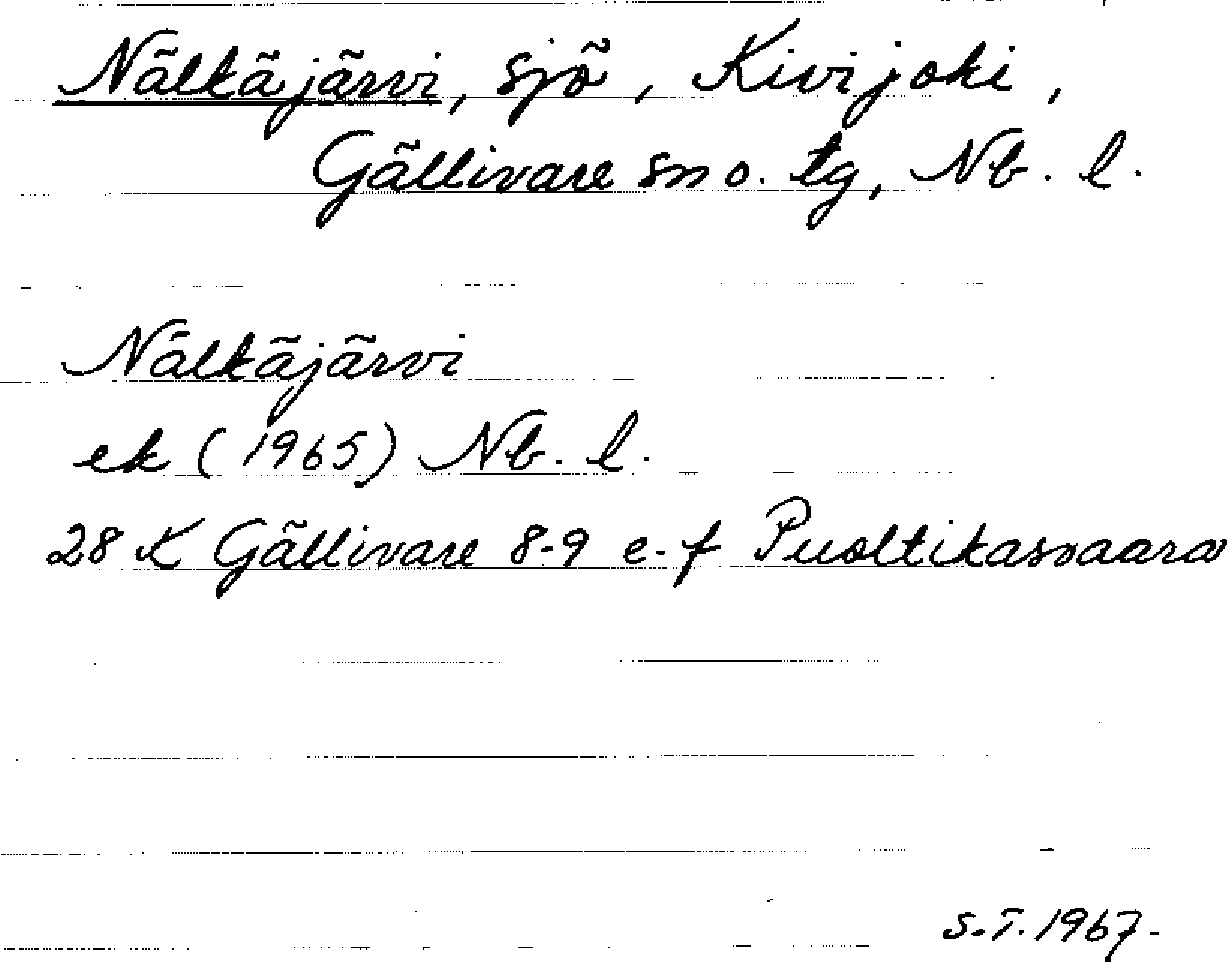 Nältäjärvi, sjö, Kivijoki,
Gällivare sn o. tg, Nb. l.
Nältäjärvi
ek (1965) Nb. l.
28 K Gällivare 8-9 e-f Puoltikasvaara
S.T. 1967.